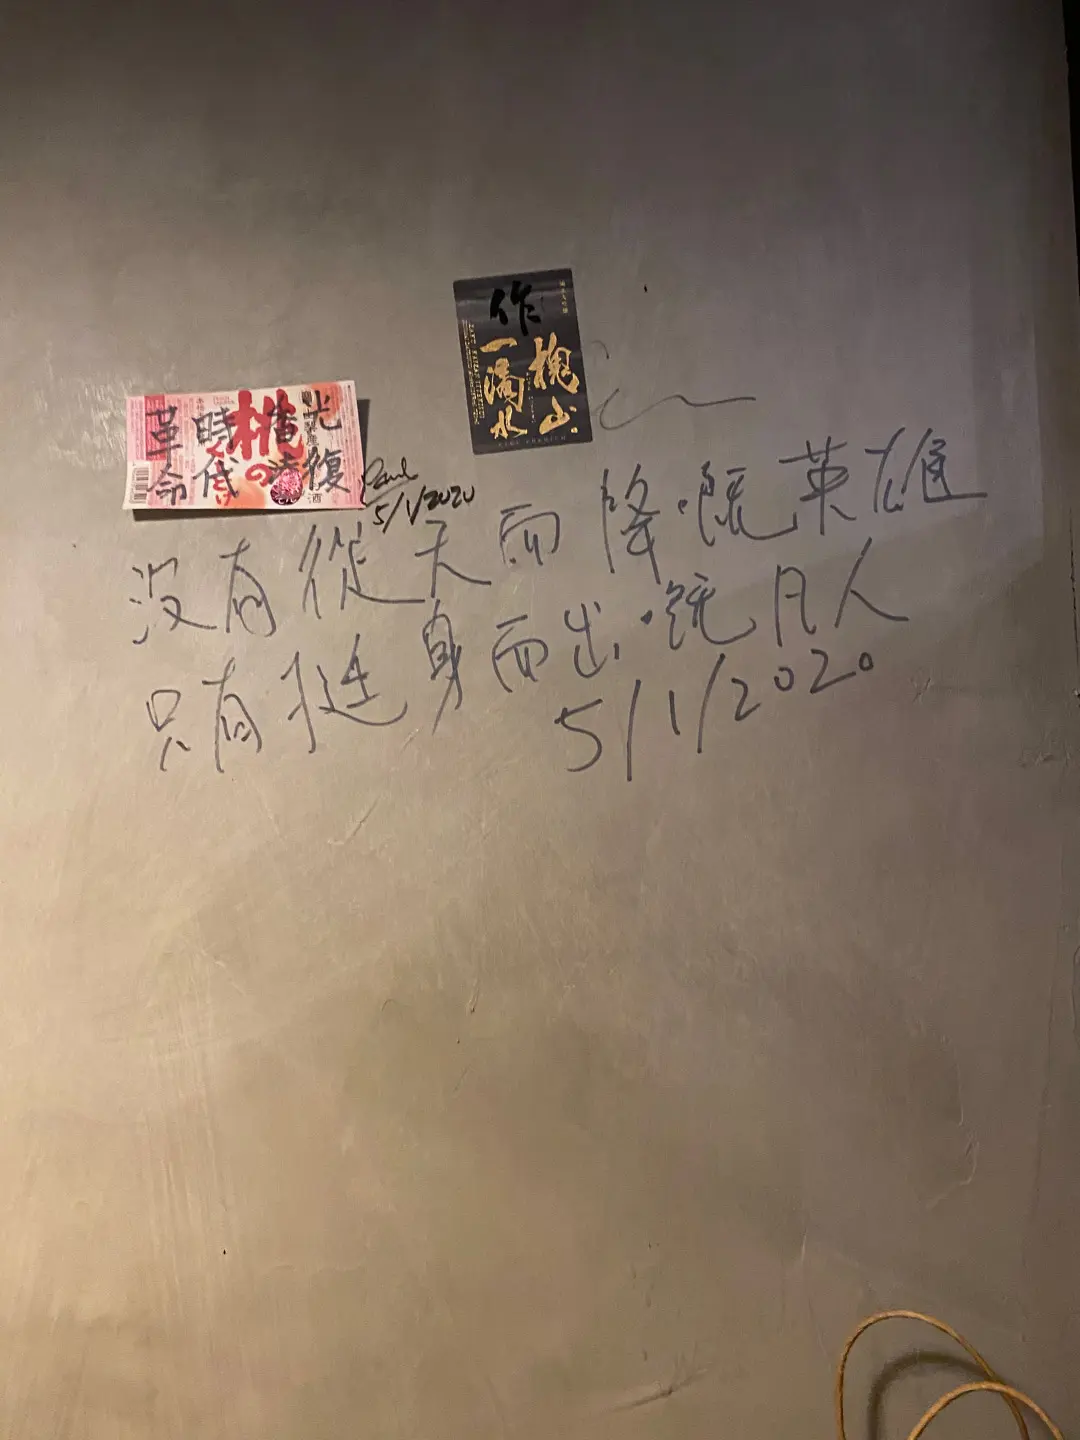 作
槐山
一滴水
光復
香港
時代
革命
桃の
Paul
5/1/2020
没有從天而降嘅英雄
只有挺身而出嘅凡人
5/1/2020